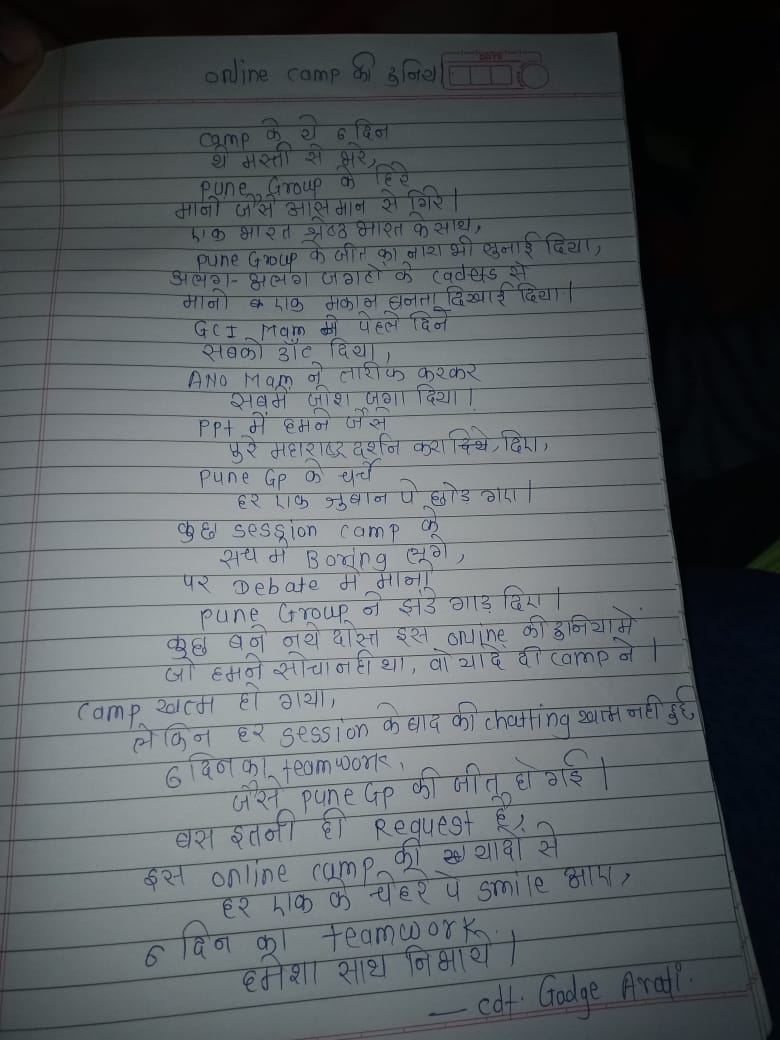 online camp की दुनिया
DATE
camp के ये 6 दिन
थे मस्ती से भरे,
Pune Group के हिरे
मानो जैसे आसमान से गिरे।
एक भारत श्रेष्ठ भारत के साथ,
Pune Group के जीत का नारा भी सुनाई दिया,
अलग-अलग जगहो के से
मानो एक मकान बनता दिखाई दिया।
GCI Mam ने पेहले दिन
सबको डाँट दिया,
ANO Mam ने तारीफ करकर
सबमें जोश जगा दिया।
PPt में हमने जैसे
पुरे महाराष्ट्र दर्शन करा दिये, दिए,
Pune Gp के चर्चे
हर एक जुबान पे छोड़ गए।
कुछ session camp के
सच में Boring लगे,
पर Debate मे मानो
Pune Group ने झंडे गाड़ दिए।
कुछ बने नये दोस्त इस online की दुनिया में
जो हमने सोचा नही था, वो यादे दी camp ने।
camp खत्म हो गया,
लेकिन हर session के बाद की chatting खत्म नही हुई
6 दिन का teamwork,
जैसे Pune Gp की जीत हो गई।
बस इतनी ही Request है,
इस online camp की यादो से
हर एक के चेहरे पे smile आए,
6 दिन का teamwork
हमेशा साथ निभाये।
— cdt. Gadge Arati.